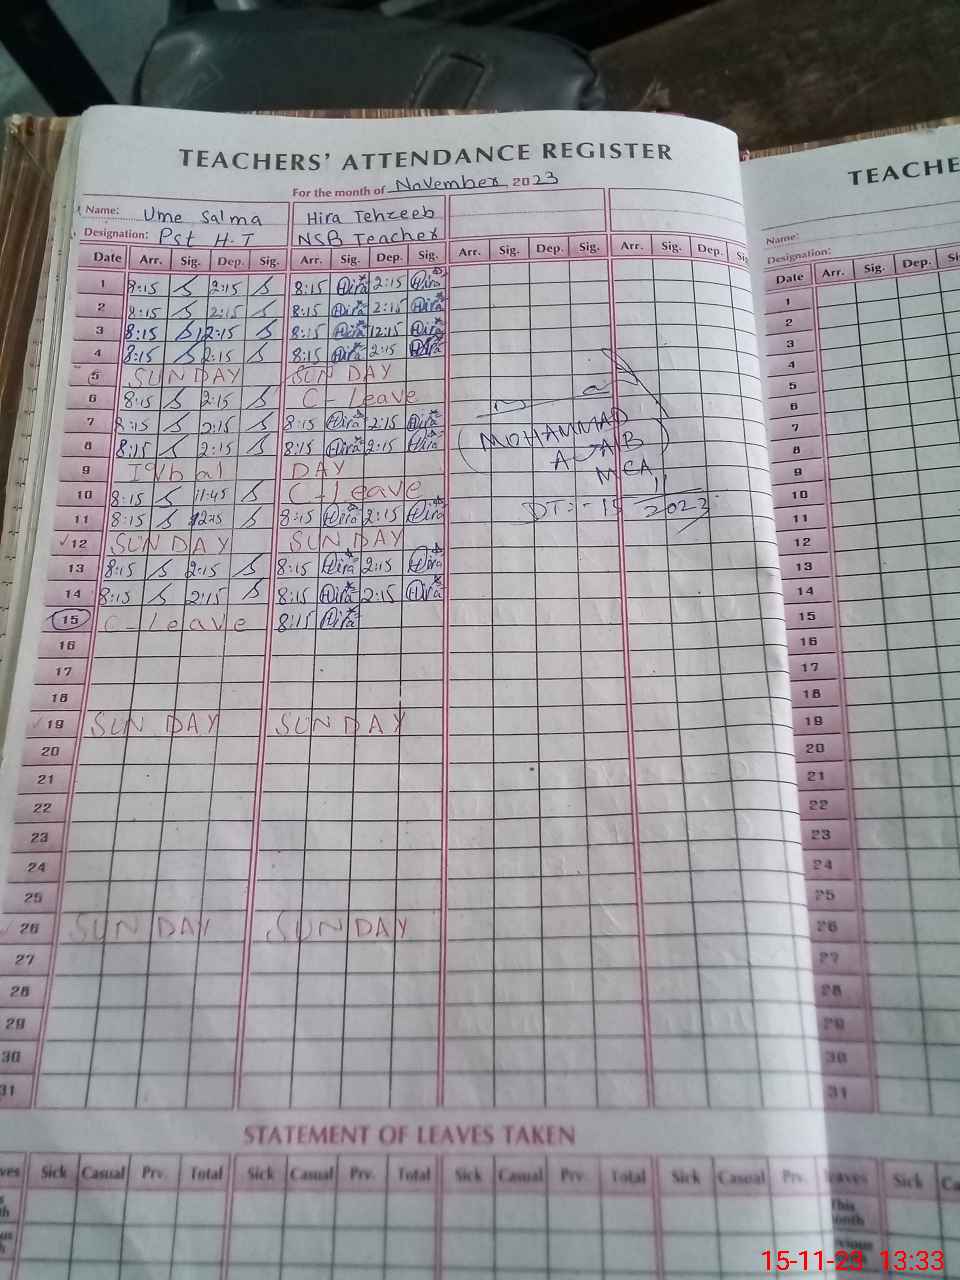 TEACHERS' ATTENDANCE REGISTER
For the month of November 2023
Name: Ume Salma Hira Tehzeeb
Designation: Pst H.T NSB Teacher
Date Arr. Sig. Dep. Sig. Arr. Sig. Dep. Sig. Arr. Sig. Dep. Sig. Arr. Sig. Dep. Sig.
1 8:15 2:15 8:15 Hira 2:15 Hira
2 8:15 2:15 8:15 Hira 2:15 Hira
3 8:15 12:15 8:15 Hira 12:15 Hira
4 8:15 2:15 8:15 Hira 2:15 Hira
5 SUNDAY SUNDAY
6 8:15 2:15 C-Leave
7 8:15 2:15 8:15 Hira 2:15 Hira
8 8:15 2:15 8:15 Hira 2:15 Hira
9 Iqbal DAY
10 8:15 11:45 C-Leave
11 8:15 8:15 Hira 2:15 Hira
12 SUNDAY SUNDAY
13 8:15 2:15 8:15 Hira 2:15 Hira
14 8:15 2:15 8:15 Hira 2:15 Hira
15 C-Leave 8:15 Hira
16
17
18
19 SUNDAY SUNDAY
20
21
22
23
24
25
26 SUNDAY SUNDAY
27
28
29
30
31
MOHAMMAD
MEA
DT:- 15 11 2023
STATEMENT OF LEAVES TAKEN
ves Sick Casual Prv. Total Sick Casual Prv. Total Sick Casual Prv. Total Sick Casual Prv.
TEACHE
Name:
Designation:
Date Arr. Sig. Dep.
1
2
3
4
5
6
7
8
9
10
11
12
13
14
15
16
17
18
19
20
21
22
23
24
25
26
27
28
29
30
31
leaves Sick Ca
This
month
15-11-23 13:33